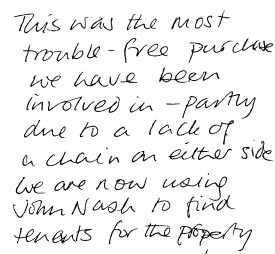 This was the most
trouble-free purchase
we have been
involved in - partly
due to a lack of
a chain on either side
We are now using
John Nash to find
tenants for the property